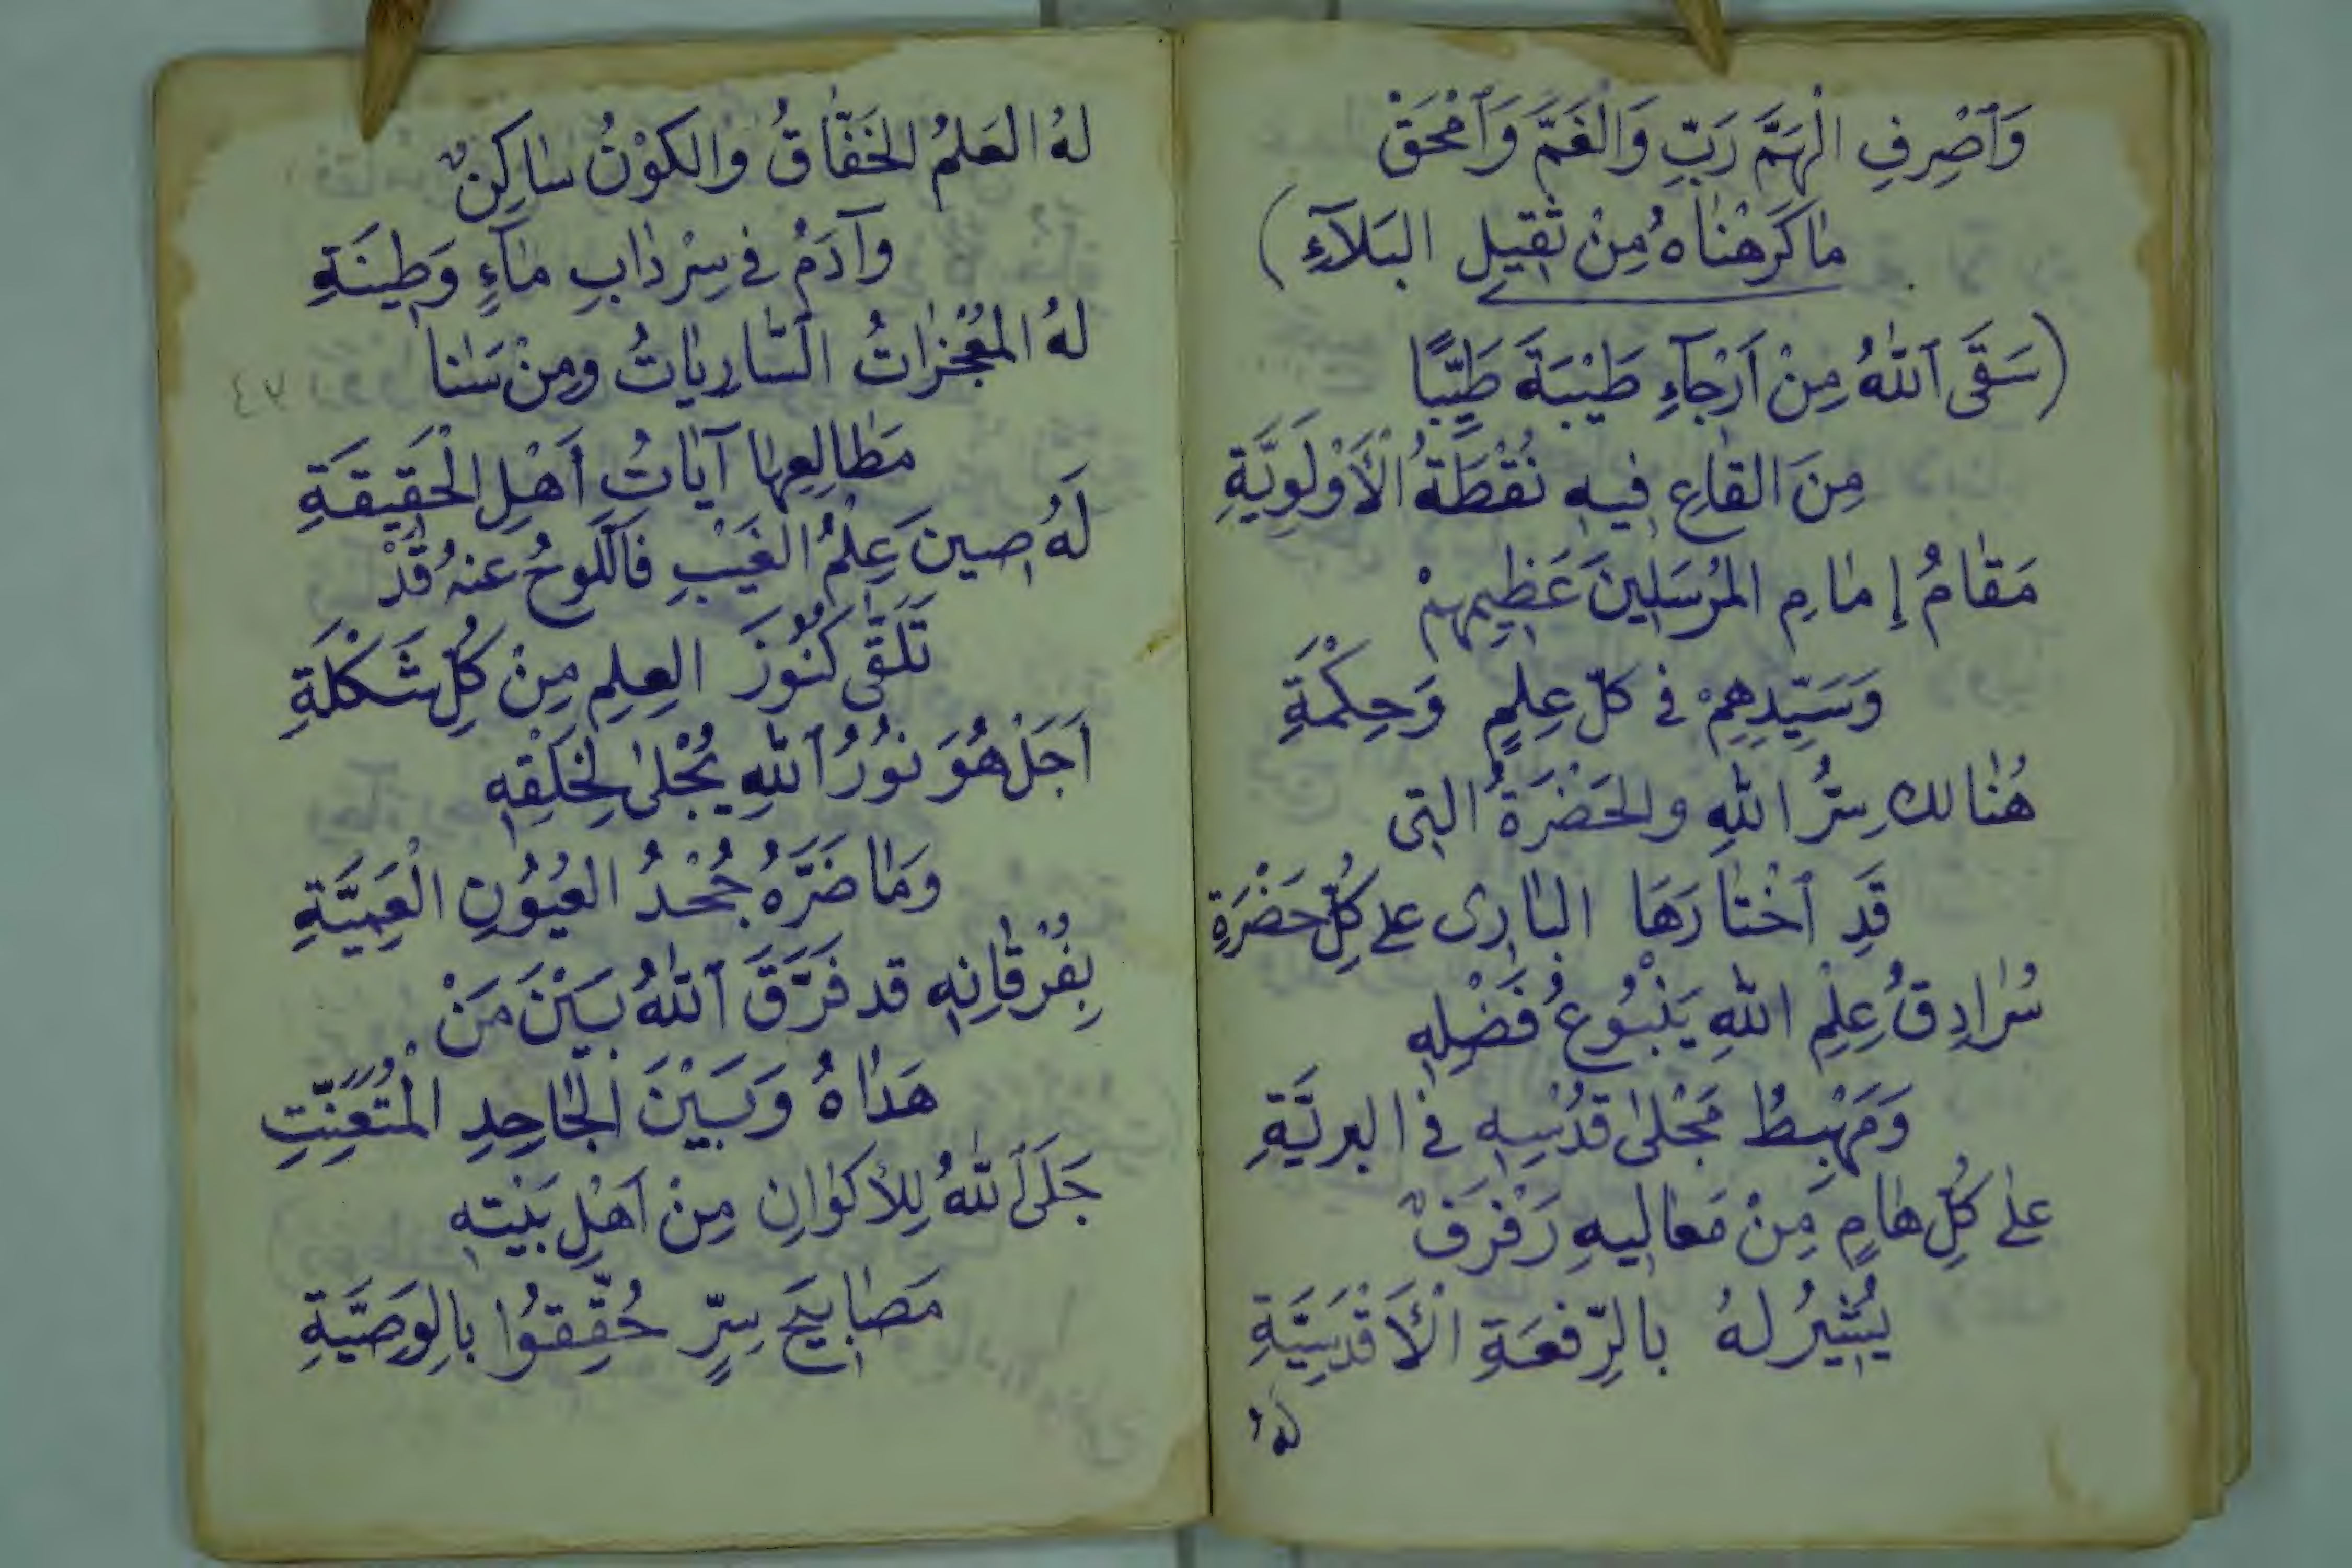 وَٱصْرِفِ الْهَمَّ رَبِّ وَالْغَمَّ وَٱمْحَقْ
مٰا كَرَهْنٰاهُ مِنْ ثَقِيلِ البَلآءِ)
(سَقَى ٱللّٰهُ مِنْ اَرْجٰآءِ طَيْبَةَ طَيِّبًا
مِنَ القٰاعِ فيهِ نُقْطَةُ الْأَوْلَوِيَّةِ
مَقٰامُ إِمٰامِ المُرْسَلِينَ عَظِيمِهِمْ
وَسَيِّدِهِمْ فى كلِّ عِلمٍ وَحِكْمَةِ
هُنٰالك سِرُّ اللّٰهِ والحَضْرَةُ التِى
قَدِ ٱخْتٰارَهَا البٰارِى على كُلِّ حَضْرَةِ
سُرٰادِقُ عِلْمِ اللّٰهِ يَنْبُوعُ فَضْلِهِ
وَمَهْبِطُ مَجْلىٰ قُدْسِهِ فى البريَّةِ
علىٰ كُلِّ هٰامٍ مِنْ مَعٰاليهِ رَفْرَفٌ
يُشِيرُ لهُ بالرِّفعَةِ الْأَقْدَسِيَّةِ
لهُ
لهُ العَلمُ الخَفّٰاقُ والكَوْنُ سٰاكِنٌ
وآدَمُ فى سِرْدٰابِ مٰآءٍ وَطِينَةِ
لهُ المُعْجِزٰاتُ السّٰارِيٰاتُ ومِنْ سَنٰا
٧٤
مَطٰالِعِهٰا آيٰاتُ أَهْلِ الْحَقِيقَةِ
لَهُ صِينَ عِلْمُ الغَيْبِ فَاللَّوحُ عنهُ قَدْ
تَلَقّٰى كُنُوزَ العِلمِ مِنْ كُلِّ شَكْلَةِ
اَجَلْ هُوَ نُورُ ٱللّٰهِ يُجْلىٰ لِخَلْقِهِ
وَمٰا ضَرَّهُ جُحْدُ العُيُونِ الْعَمِيَّةِ
بِفُرْقٰانِهِ قد فَرَّقَ ٱللّٰهُ بَيْنَ مَنْ
هَدٰاهُ وَبَيْنَ الجٰاحِدِ الْمُتَعَنِّتِ
جَلَى ٱللّٰهُ لِلأَكوٰانِ مِنْ اَهْلِ بَيْتِهِ
مَصٰابِيحَ سِرٍّ حُقِّقُوا بالوَصِيَّةِ